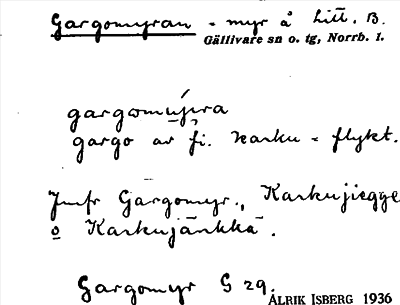 Gargomyran - myr å Litt. B.
Gällivare sn o. tg, Norrb. l.
gargomýra
gargo av fi. karku = flykt.
Jmfr Gargomyr., Karkujiegge
o Karkujänkkä.
Gargomyr G 29.
ALRIK ISBERG 1936